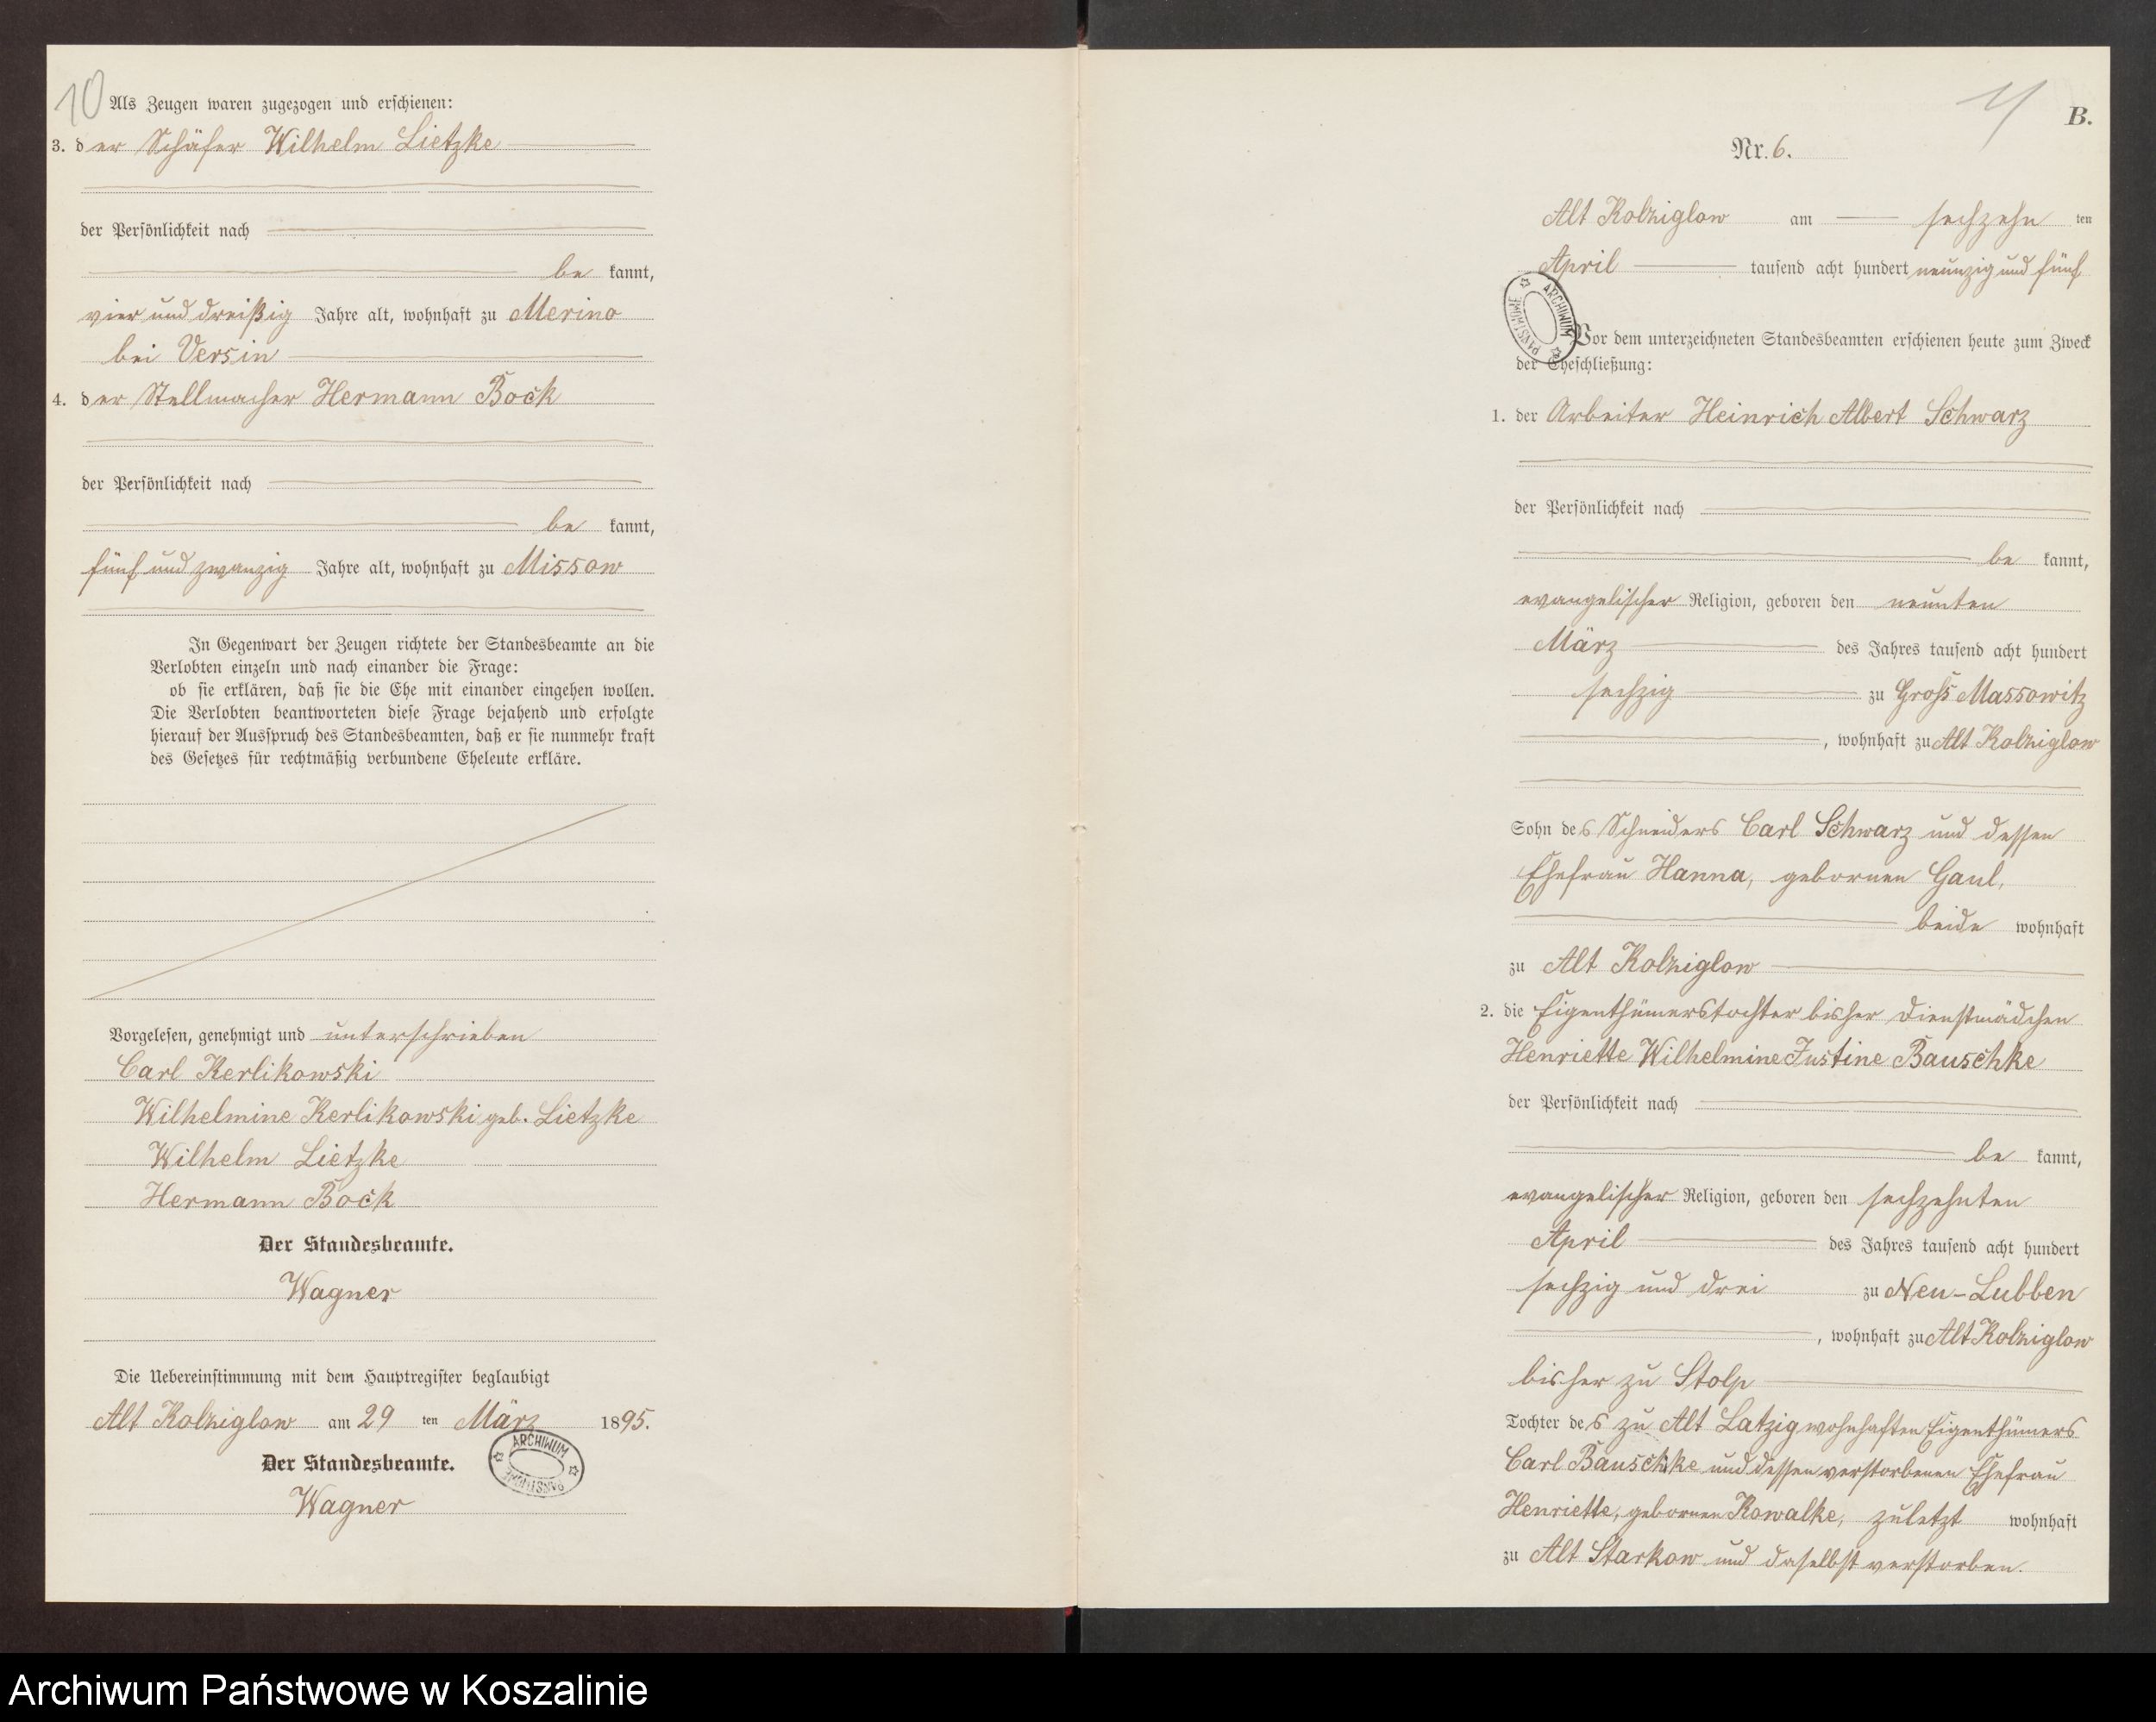 10
Als Zeugen waren zugezogen und erschienen:
3. der Schäfer Wilhelm Lietzke
der Persönlichkeit nach
be kannt,
vier und dreißig Jahre alt, wohnhaft zu Merino
bei Versin
4. der Stellmacher Hermann Bock
der Persönlichkeit nach
be kannt,
fünf und zwanzig Jahre alt, wohnhaft zu Missow
In Gegenwart der Zeugen richtete der Standesbeamte an die
Verlobten einzeln und nach einander die Frage:
ob sie erklären, daß sie die Ehe mit einander eingehen wollen.
Die Verlobten beantworteten diese Frage bejahend und erfolgte
hierauf der Ausspruch des Standesbeamten, daß er sie nunmehr kraft
des Gesetzes für rechtmäßig verbundene Eheleute erkläre.
Vorgelesen, genehmigt und unterschrieben
Carl Kerlikowski
Wilhelmine Kerlikowski geb. Lietzke
Wilhelm Lietzke
Hermann Bock
Der Standesbeamte.
Wagner
Die Uebereinstimmung mit dem Hauptregister beglaubigt
Alt Kolziglow am 29 ten März 1895.
Der Standesbeamte.
Wagner
ARCHIWUM PAŃSTWOWE
11
B.
Nr. 6.
Alt Kolziglow am sechzehn ten
April tausend acht hundert neunzig und fünf
ARCHIWUM PAŃSTWOWE
Vor dem unterzeichneten Standesbeamten erschienen heute zum Zweck
der Eheschließung:
1. der Arbeiter Heinrich Albert Schwarz
der Persönlichkeit nach
be kannt,
evangelischer Religion, geboren den neunten
März des Jahres tausend acht hundert
sechzig zu Groß Massowitz
, wohnhaft zu Alt Kolziglow
Sohn des Schneiders Carl Schwarz und dessen
Ehefrau Hanna, gebornen Gaul,
beide wohnhaft
zu Alt Kolziglow
2. die Eigenthümerstochter bisher Dienstmädchen
Henriette Wilhelmine Justine Bauschke
der Persönlichkeit nach
be kannt,
evangelischer Religion, geboren den sechzehnten
April des Jahres tausend acht hundert
sechzig und drei zu Neu-Lubben
, wohnhaft zu Alt Kolziglow
bisher zu Stolp
Tochter des zu Alt Latzig wohnhaften Eigenthümers
Carl Bauschke und dessen verstorbenen Ehefrau
Henriette, gebornen Kowalke, zuletzt wohnhaft
zu Alt Starkow und daselbst verstorben.
Archiwum Państwowe w Koszalinie